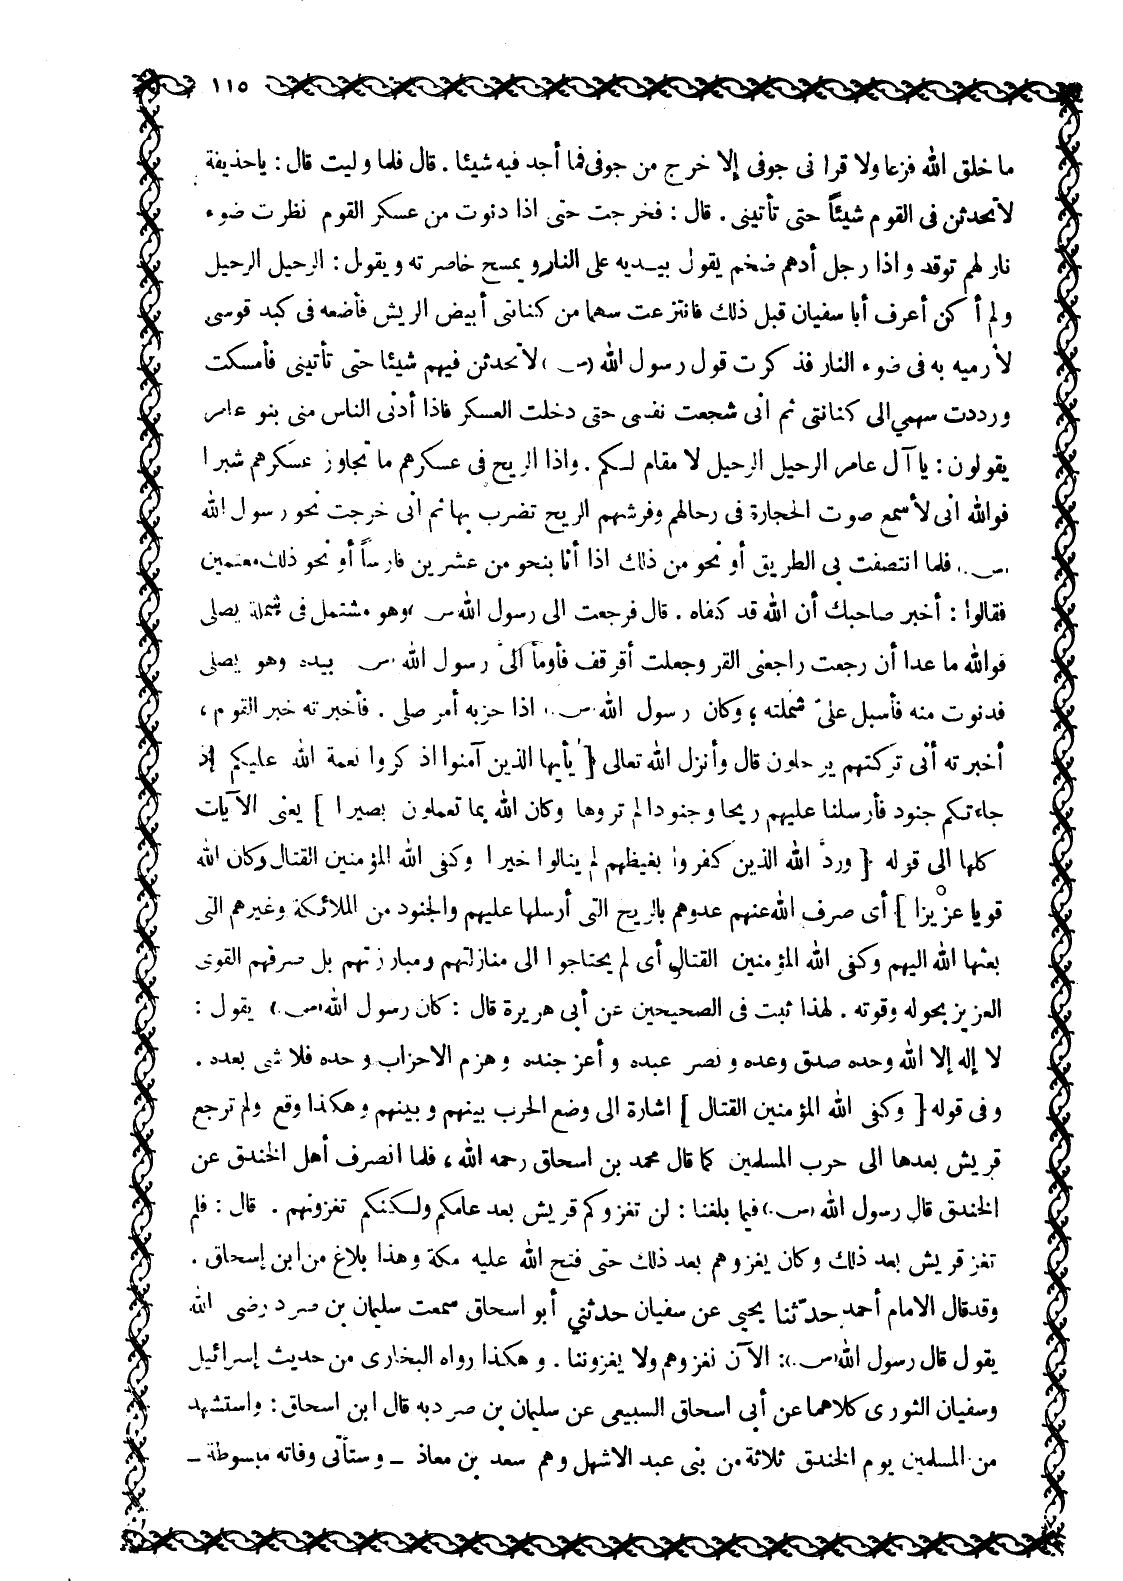 ١١٥
ما خلق الله فزعا ولا قرا فى جوفى إلا خرج من جوفى فما أجد فيه شيئا . قال فلما وليت قال : ياحذيفة
لا تحدثن فى القوم شيئاً حتى تأتينى . قال : فخرجت حتى اذا دنوت من عسكر القوم نظرت ضوء
نار لهم توقد واذا رجل أدهم ضخم يقول بيديه على النار ويمسح خاصرته ويقول : الرحيل الرحيل
ولم أكن أعرف أبا سفيان قبل ذلك فانتزعت سهما من كنانتى أبيض الريش فأضعه فى كبد قوسى
لأرميه به فى ضوء النار فذكرت قول رسول الله (ص) لا تحدثن فيهم شيئا حتى تأتينى فأمسكت
ورددت سهمي الى كنانتى ثم انى شجعت نفسى حتى دخلت العسكر فاذا أدنى الناس منى بنو عامر
يقولون : يا آل عامر الرحيل الرحيل لا مقام لكم . واذا الريح فى عسكرهم ما تجاوز عسكرهم شبرا
فوالله انى لأسمع صوت الحجارة فى رحالهم وفرشهم الريح تضرب بها ثم انى خرجت نحو رسول الله
(ص) فلما انتصفت بى الطريق أو نحو من ذلك اذا أنا بنحو من عشرين فارساً أو نحو ذلك معتمين
فقالوا : أخبر صاحبك أن الله قد كفاه . قال فرجعت الى رسول الله (ص) وهو مشتمل فى شملة يصلى
فوالله ما عدا أن رجعت راجعنى القر وجعلت أقرقف فأومأ الىّ رسول الله (ص) بيده وهو يصلى
فدنوت منه فأسبل علىّ شملته ؛ وكان رسول الله (ص) اذا حزبه أمر صلى . فأخبرته خبر القوم ،
أخبرته أنى تركتهم يرحلون قال وأنزل الله تعالى [ يأيها الذين آمنوا اذكروا نعمة الله عليكم إذ
جاءتكم جنود فأرسلنا عليهم ريحا وجنودا لم تروها وكان الله بما تعملون بصيرا ] يعنى الآيات
كلها الى قوله [ وردّ الله الذين كفروا بغيظهم لم ينالوا خيرا وكفى الله المؤمنين القتال وكان الله
قويا عزيزا ] أى صرف الله عنهم عدوهم بالريح التى أرسلها عليهم والجنود من الملائكة وغيرهم التى
بعثها الله اليهم وكفى الله المؤمنين القتال أى لم يحتاجوا الى منازلتهم ومبارزتهم بل صرفهم القوى
العزيز بحوله وقوته . لهذا ثبت فى الصحيحين عن أبى هريرة قال : كان رسول الله (ص) يقول :
لا إله إلا الله وحده صدق وعده ونصر عبده وأعز جنده وهزم الاحزاب وحده فلا شى بعده .
وفى قوله [ وكفى الله المؤمنين القتال ] اشارة الى وضع الحرب بينهم وبينهم وهكذا وقع ولم ترجع
قريش بعدها الى حرب المسلمين كما قال محمد بن اسحاق رحمه الله ، فلما انصرف أهل الخندق عن
الخندق قال رسول الله (ص) فيما بلغنا : لن تغزوكم قريش بعد عامكم ولكنكم تغزونهم . قال : فلم
تغز قريش بعد ذلك وكان يغزوهم بعد ذلك حتى فتح الله عليه مكة وهذا بلاغ من ابن إسحاق .
وقد قال الامام أحمد حدّثنا يحيى عن سفيان حدثني أبو اسحاق سمعت سليمان بن صرد رضى الله
يقول قال رسول الله (ص) : الآن نغزوهم ولا يغزوننا . وهكذا رواه البخارى من حديث إسرائيل
وسفيان الثورى كلاهما عن أبى اسحاق السبيعى عن سليمان بن صرد به قال ابن اسحاق : واستشهد
من المسلمين يوم الخندق ثلاثة من بنى عبد الاشهل وهم سعد بن معاذ ــ وستأتى وفاته مبسوطة ــ